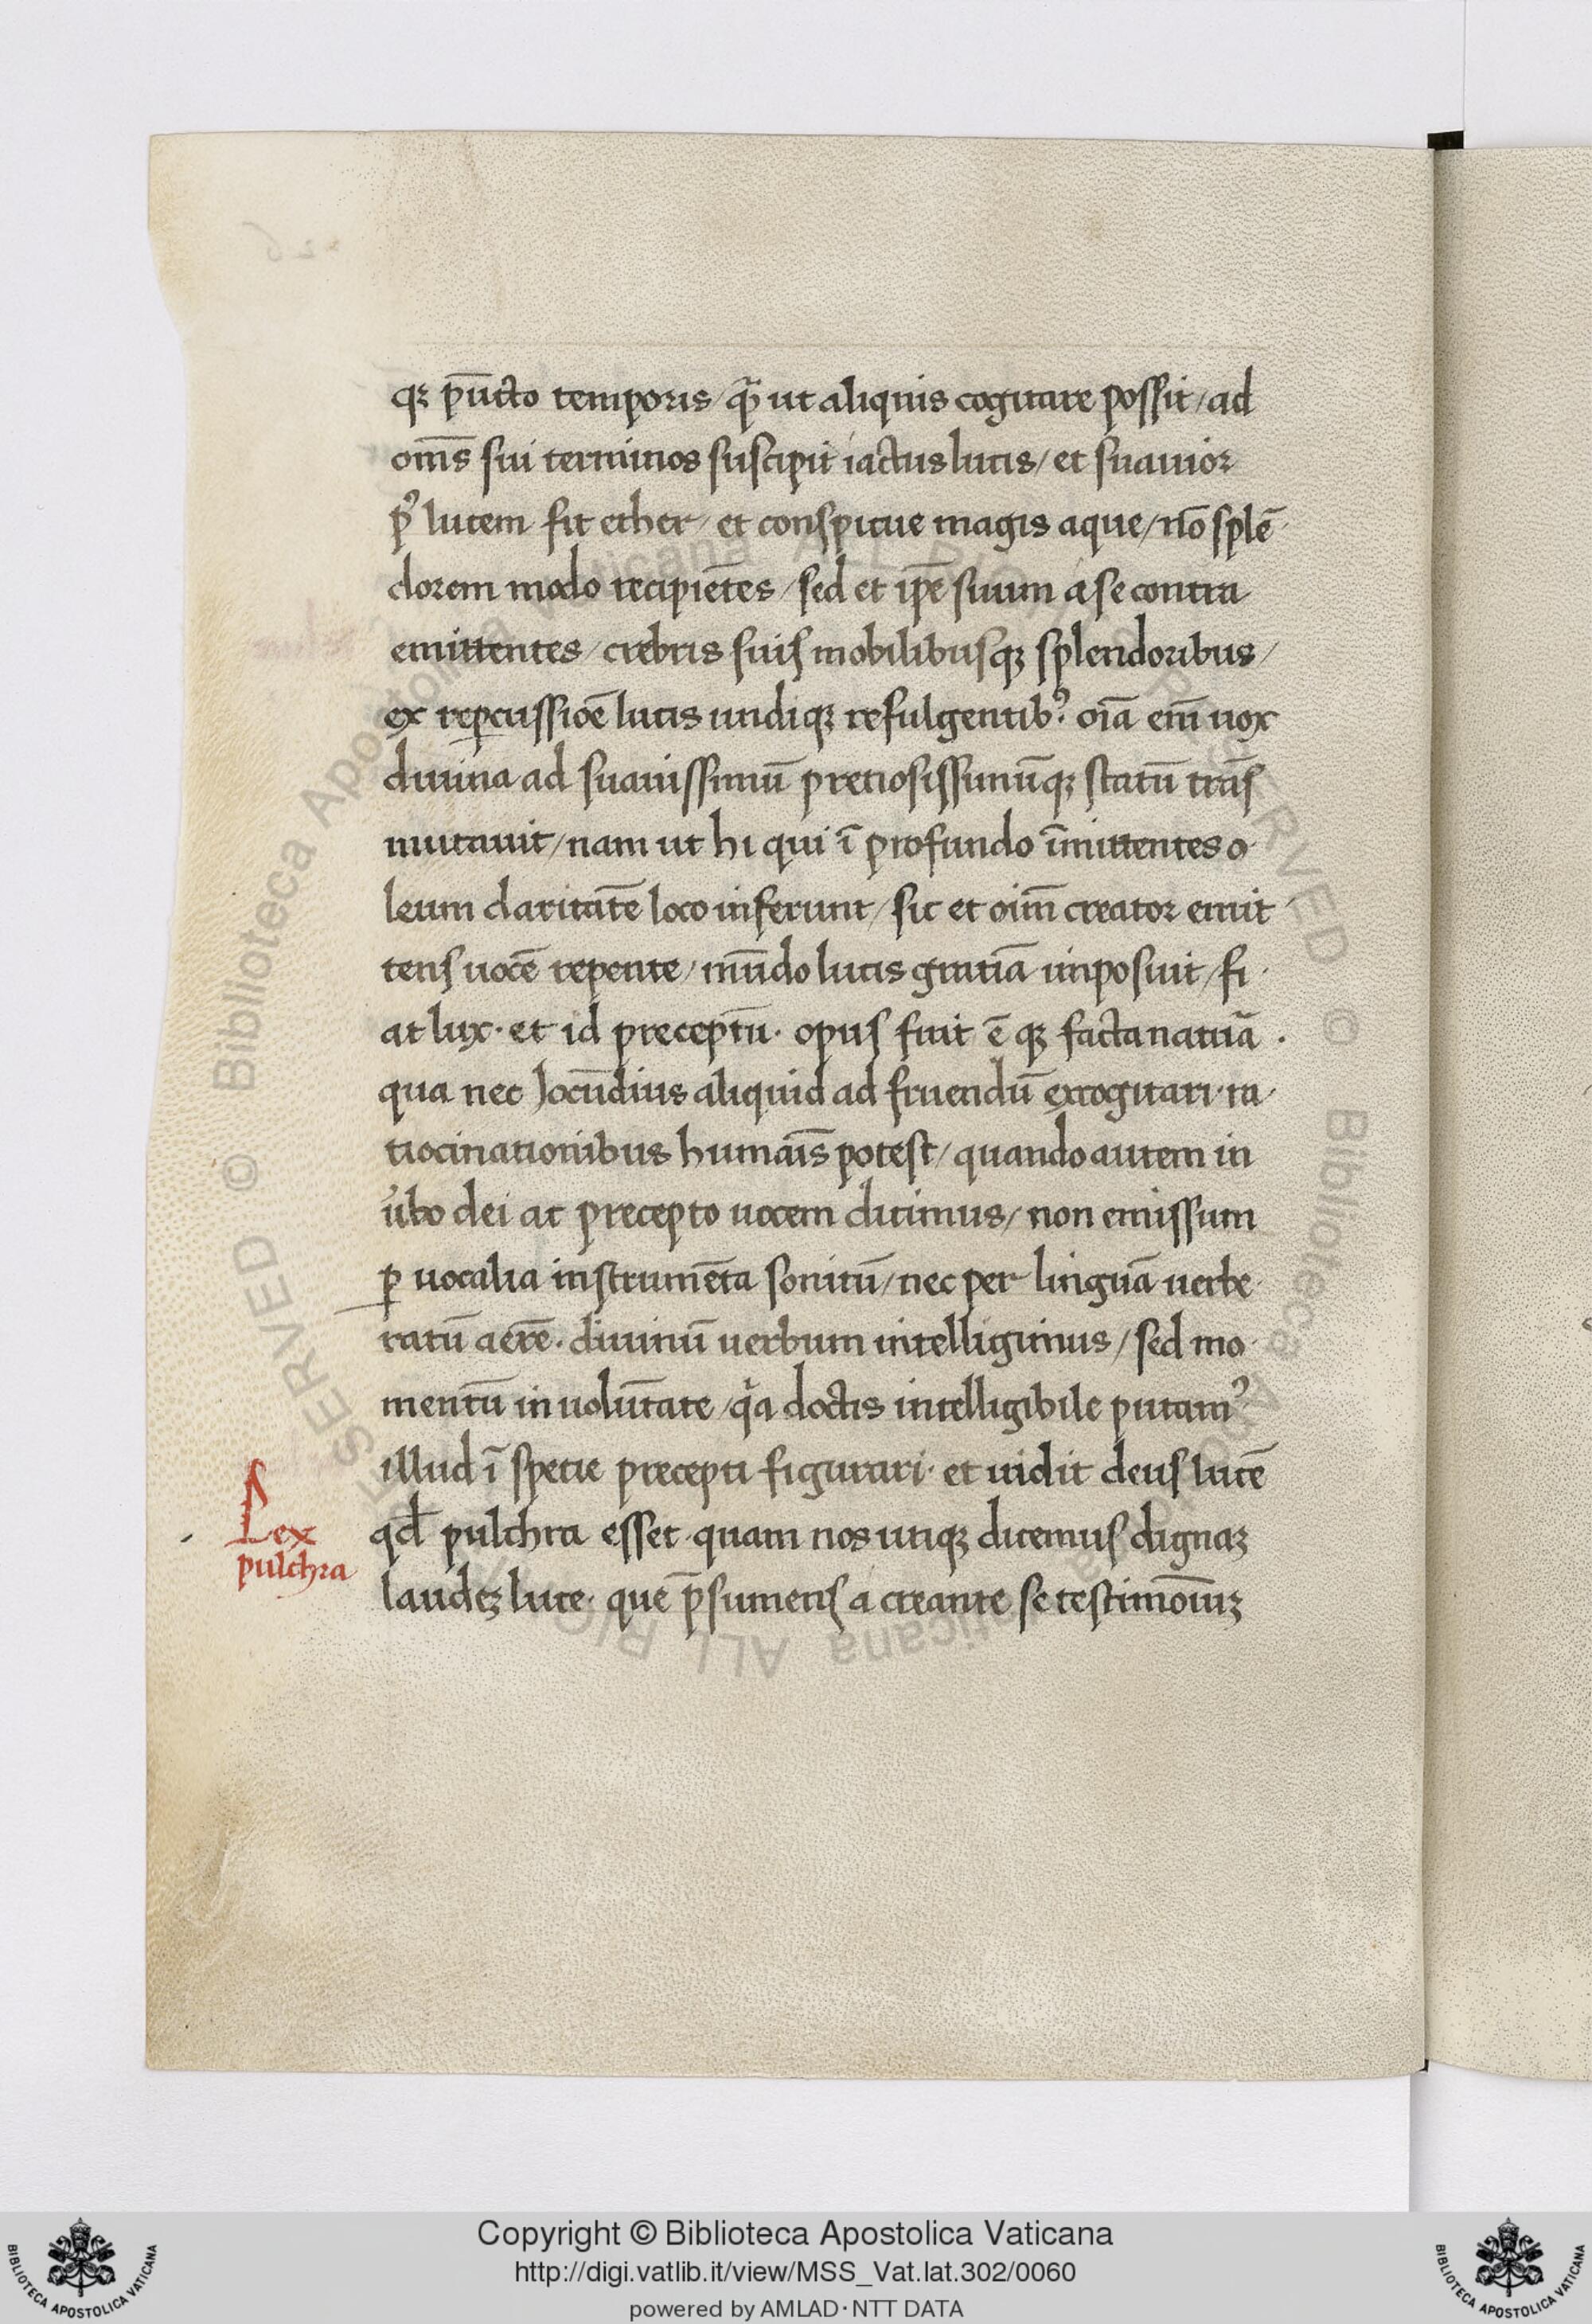 qꝫ pūcto temporis/ qᷓ ut aliquis cogitare possit/ ad
om̄s sui terminos suscipit iactus lucis/ et suauior
pꝰ lucem fit ether/ et conspicue magis aque/ nō splē
dorem modo recipiētes/ sed et ip̄e suum a se contra
emittentes/ crebris suis mobilibusqꝫ splendoribus/
ex reꝑcussiōe lucis undiqꝫ refulgentibꝰ· oīa em̄ uox
diuina ad suauissimū pretiosissimūqꝫ statū trās
mutauit/ nam ut hi qui ī profundo īmittentes o
leum claritatē loco inferunt/ sic et oīm creator emit
tens uocē repente/ mūdo lucis gratiā imposuit/ fi
at lux· et id preceptū· opus fuit ē qꝫ facta natuā·
qua nec Jocūdius aliquid ad fruendū excogitari· ra
tiocinationibus humāis potest/ quando autem in
u̓bo dei ac precepto uocem dicimus/ non emissum
ꝑ uocalia instrumēta sonitū/ nec per linguā uerbe
ratū aerē· diuinū uerbum intelligimus/ sed mo
mentū in volūtate/ qͥa doctis intelligibile putamꝰ
illud ī specie precepti figurari· et uidit deus lucē
Lex
pulchra
qđ pulchra esset· quam nos utiqꝫ dicemus dignaꝫ
laudeꝫ luce· que p̄sumens a creante se testimoīuꝫ
Copyright © Biblioteca Apostolica Vaticana
http://digi.vatlib.it/view/MSS_Vat.lat.302/0060
powered by AMLAD·NTT DATA
BIBLIOTECA APOSTOLICA VATICANA
BIBLIOTECA APOSTOLICA VATICANA